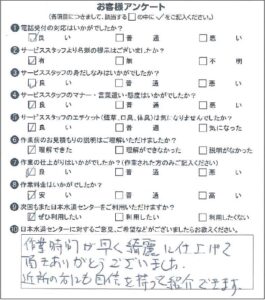 お客様アンケート
(各項目につきまして、該当する□の中に✓をご記入ください。)
❶電話受付の対応はいかがでしたか?
☑良い □普通 □悪い
❷サービススタッフより名刺の提示はございましたか?
☑有 □無 □不明
❸サービススタッフの身だしなみはいかがでしたか?
☑良い □普通 □悪い
❹サービススタッフのマナー・言葉遣い・態度はいかがでしたか?
☑良い □普通 □悪い
❺サービススタッフのエチケット(煙草、口臭、体臭)は気になりませんでしたか?
☑良い □普通 □気になった
❻作業前のお見積もりの説明はご理解いただけましたか?
☑理解できた □理解ができなかった □説明がなかった
❼作業の仕上がりはいかがでしたか?(作業された方のみご記入ください)
☑良い □普通 □悪い
❽作業料金はいかがでしたか?
☑安い □普通 □高い
❾次回もまたは日本水道センターをご利用いただけますか?
☑ぜひ利用したい □利用したい □利用したくない
❿日本水道センターに対するご意見、ご希望などがございましたらお答えください。
作業時間が早く綺麗に仕上げて
頂きありがとうございました。
近所の方にも自信を持って紹介できます。